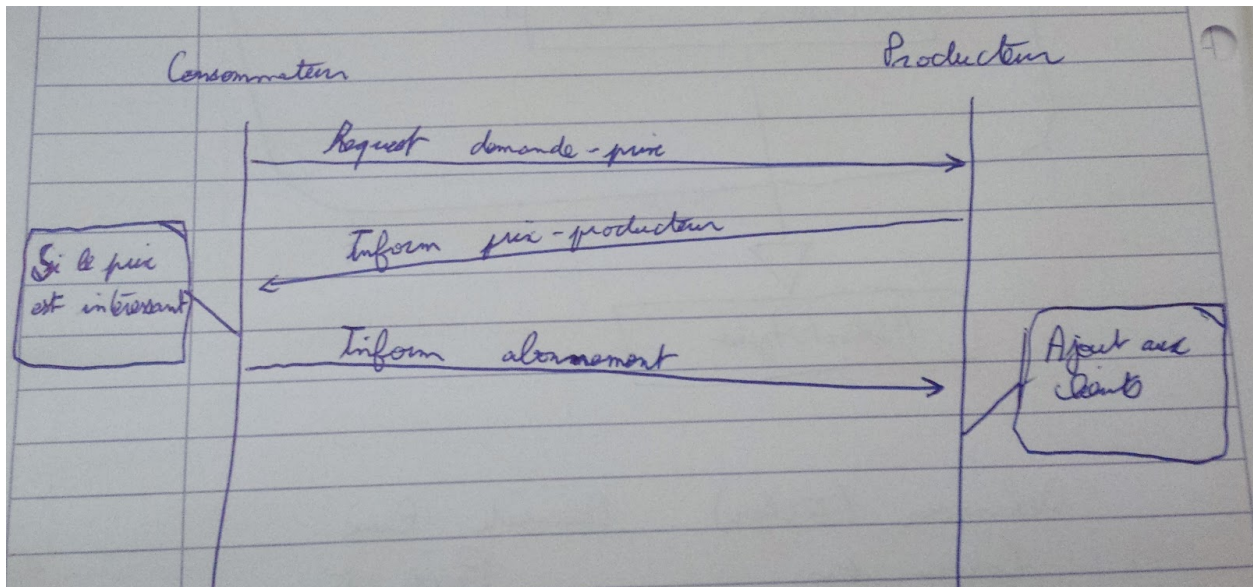 Consommateur
Producteur
Request demande-prix
Inform prix-producteur
Si le prix
est intéressant
Inform abonnement
Ajout aux
clients